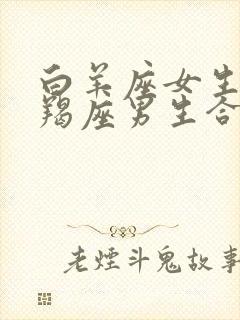 白羊座女生
羯座男生合
老煙斗鬼故事